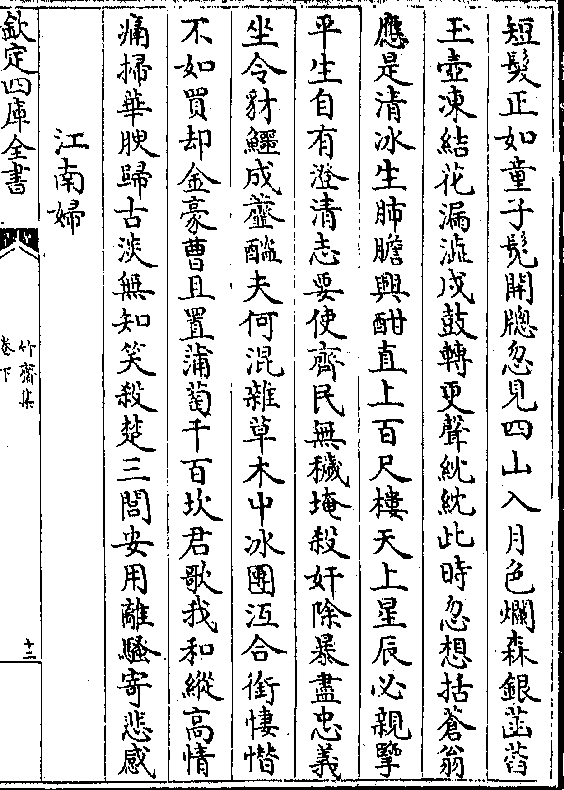 短髮正如童子髡開牕忽見四山入月色爛森銀菡萏
玉壺凍結花漏澁戍鼓轉更聲紞紞此時忽想括蒼翁
應是清冰生肺膽興酣直上百尺樓天上星辰必親擥
平生自有澄清志要使齊民無穢埯殺奸除暴盡忠義
坐令豺鱷成虀醢夫何混雜草木中冰團沍合銜悽憯
不如買却金豪曹且置蒲萄千百坎君歌我和縱高情
痛掃華腴歸古淡無知笑殺楚三閭安用離騷寄悲感
江南婦
欽定四庫全書
竹齋集
卷下
十三